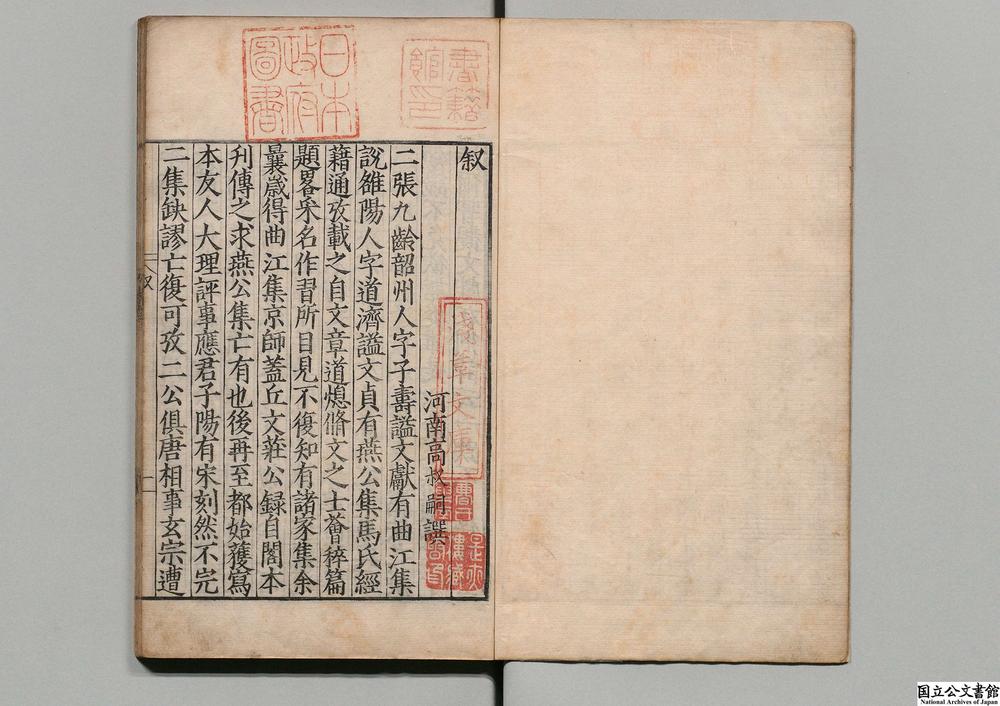 叙
河南高叔嗣譔
二張九齡韶州人字子壽謚文獻有曲江集
說雒陽人字道濟謚文貞有燕公集馬氏經
籍通攷載之自文章道熄脩文之士薈稡篇
題畧采名作習所目見不復知有諸家集余
曩歲得曲江集京師蓋丘文莊公録自閣本
刋傳之求燕公集亡有也後再至都始獲寫
本友人大理評事應君子陽有宋刻然不完
二集缺謬亡復可攷二公俱唐相事玄宗遭
叙
一
日本
政府
圖書
書籍
館印
国立公文書館
National Archives of Japan